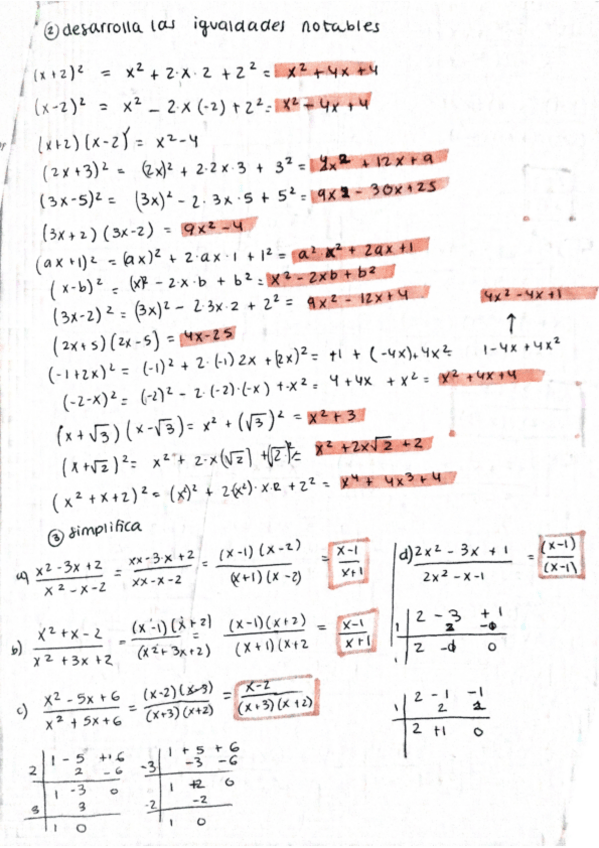 ② desarrolla las igualdades notables
(x+2)² = x² + 2·x·2 + 2² = x² + 4x + 4
(x-2)² = x² - 2·x(-2) + 2² = x² - 4x + 4
(x+2)(x-2) = x² - 4
(2x+3)² = (2x)² + 2·2x·3 + 3² = 4x² + 12x + 9
(3x-5)² = (3x)² - 2·3x·5 + 5² = 9x² - 30x + 25
(3x+2)(3x-2) = 9x² - 4
(ax+1)² = (ax)² + 2·ax·1 + 1² = a²·x² + 2ax + 1
(x-b)² = (x)² - 2·x·b + b² = x² - 2xb + b²
(3x-2)² = (3x)² - 2·3x·2 + 2² = 9x² - 12x + 4
4x² - 4x + 1
↑
(2x+5)(2x-5) = 4x-25
(-1+2x)² = (-1)² + 2·(-1)2x + (2x)² = +1 + (-4x) + 4x² = 1 - 4x + 4x²
(-2-x)² = (-2)² - 2·(-2)·(-x) + x² = 4 + 4x + x² = x² + 4x + 4
(x+√3)(x-√3) = x² + (√3)² = x² + 3
(x+√2)² = x² + 2·x(√2) + (√2)² = x² + 2x√2 + 2
(x²+x+2)² = (x²)² + 2(x²)·x·2 + 2² = x⁴ + 4x³ + 4
③ simplifica
a) x² - 3x + 2 / x² - x - 2 = xx - 3·x + 2 / xx - x - 2 = (x-1)(x-2) / (x+1)(x-2) = x-1 / x+1
b) x² + x - 2 / x² + 3x + 2 = (x-1)(x+2) / (x² + 3x + 2) = (x-1)(x+2) / (x+1)(x+2 = x-1 / x+1
c) x² - 5x + 6 / x² + 5x + 6 = (x-2)(x-3) / (x+3)(x+2) = x-2 / (x+3)(x+2)
2 | 1 - 5 + 6
2 - 6
1 - 3 0
3 | 3
1 0
-3 | 1 + 5 + 6
-3 - 6
1 +2 0
-2 | -2
1 0
d) 2x² - 3x + 1 / 2x² - x - 1 = (x-1) / (x-1)
1 | 2 - 3 + 1
2 -1
2 -1 0
1 | 2 - 1 -1
2 1
2 +1 0